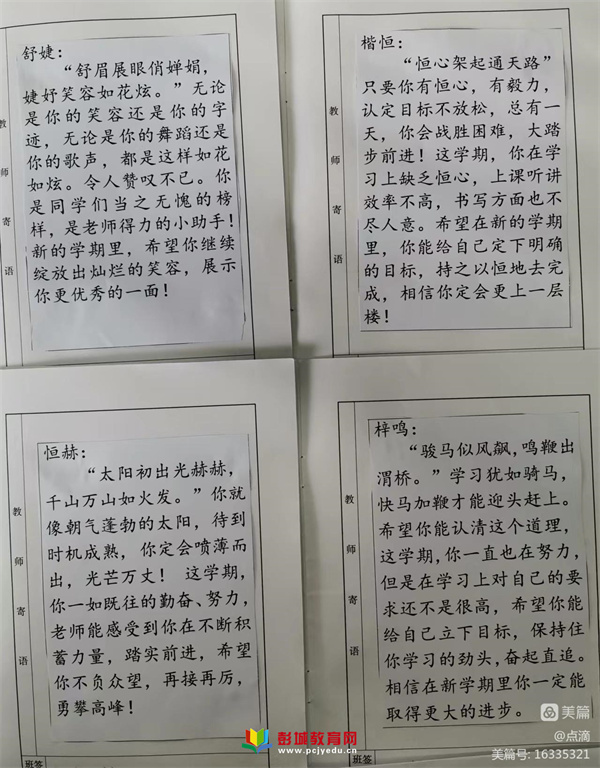 舒婕：
“舒眉展眼俏婵娟，
婕妤笑容如花炫。”无论
是你的笑容还是你的字
迹，无论是你的舞蹈还是
你的歌声，都是这样如花
如炫。令人赞叹不已。你
是同学们当之无愧的榜
样，是老师得力的小助手！
新的学期里，希望你继续
绽放出灿烂的笑容，展示
你更优秀的一面！
教师寄语
楷恒：
“恒心架起通天路”
只要你有恒心，有毅力，
认定目标不放松，总有一
天，你会战胜困难，大踏
步前进！这学期，你在学
习上缺乏恒心，上课听讲
效率不高，书写方面也不
尽人意。希望在新的学期
里，你能给自己定下明确
的目标，持之以恒地去完
成，相信你定会更上一层
楼！
教师寄语
恒赫：
“太阳初出光赫赫，
千山万山如火发。”你就
像朝气蓬勃的太阳，待到
时机成熟，你定会喷薄而
出，光芒万丈！这学期，
你一如既往的勤奋、努力，
老师能感受到你在不断积
蓄力量，踏实前进，希望
你不负众望，再接再厉，
勇攀高峰！
教师寄语
班签
梓鸣：
“骏马似风飙，鸣鞭出
渭桥。”学习犹如骑马，
快马加鞭才能迎头赶上。
希望你能认清这个道理，
这学期，你一直也在努力，
但是在学习上对自己的要
求还不是很高，希望你能
给自己立下目标，保持住
你学习的劲头，奋起直追。
相信在新学期里你一定能
取得更大的进步。
教师寄语
班签
彭城教育网
www.pcjyedu.cn
美篇
@点滴
美篇号：16335321